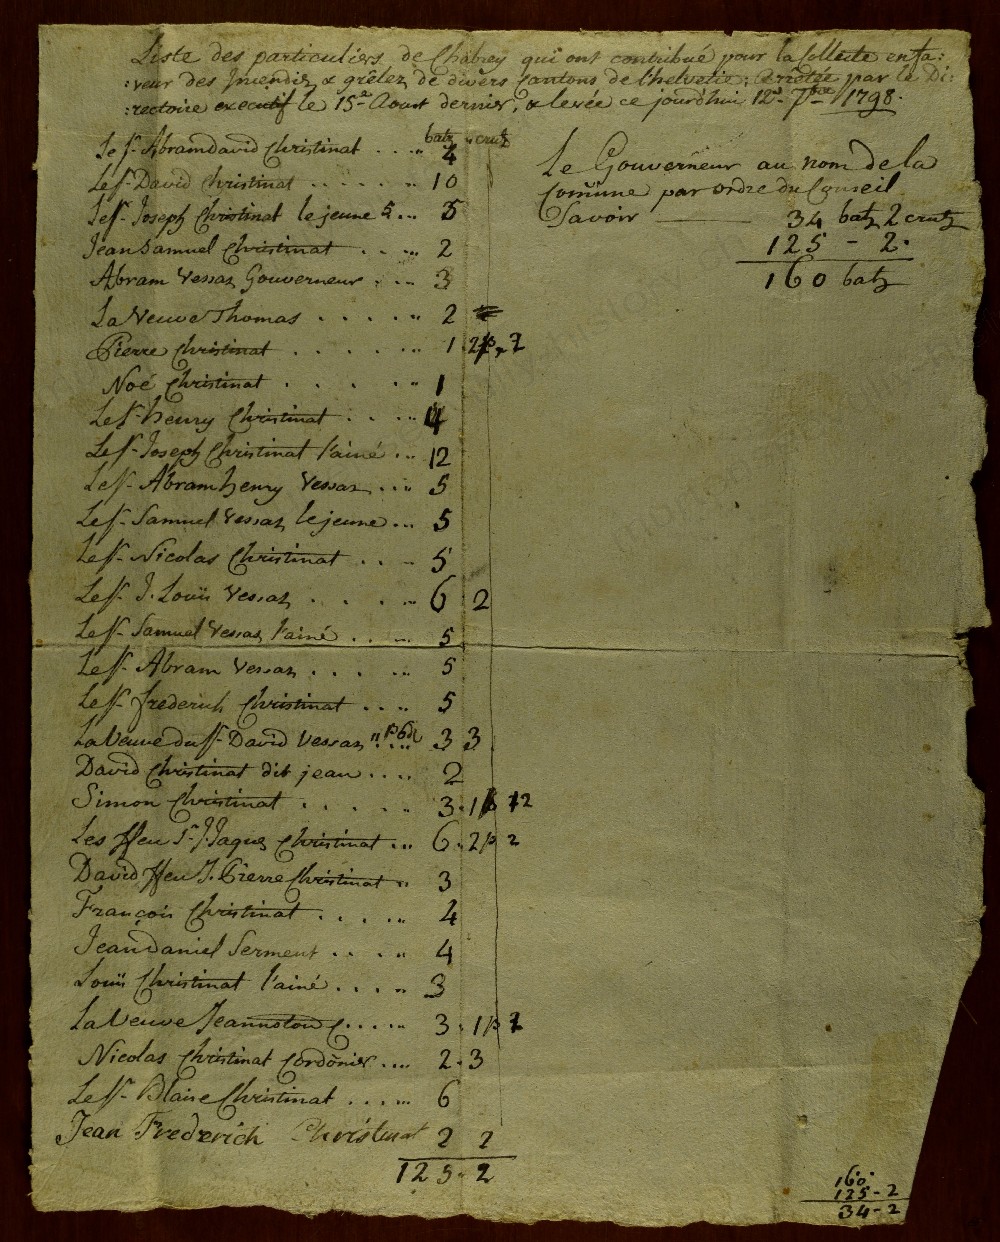 Liste des particuliers de Chabrey qui ont contribué pour la Collecte en fa:
:veur des Jncendiez & grêlez de divers Cantons de l'helvetie, arrêtée par le Di:
:rectoire executif le 15e Aoust dernier, & levée ce jourd'hui 12e 7bre 1798.
batz crutz
Le Sr. Abram david Christinat .... 4
Le Sr. David Christinat ...... 10
Le Sr. Joseph Christinat le jeune 5 ... 5
Jean Samuel Christinat ..... 2
Abram Vessaz Gouverneur .... 3
La Veuve Thomas ..... 2
Pierre Christinat ...... 1 2/3 2
Noé Christinat ..... 1
Le Sr. henry Christinat .... 4
Le Sr. Joseph Christinat l'ainé ... 12
Le Sr. Abram henry Vessaz .... 5
Le Sr. Samuel Vessaz le jeune ... 5
Le Sr. Nicolas Christinat .... 5
Le Sr. J. Louïs Vessaz ..... 6 2
Le Sr. Samuel Vessaz l'ainé .... 5
Le Sr. Abram Vessaz ..... 5
Le Sr. frederich Christinat .... 5
La Veuve du Sr. David Vessaz 3 3
David Christinat dit jean .... 2
Simon Christinat ...... 3 . 1 2
Les ffeu Sr. J. Jaques Christinat ... 6 . 2 2
David ffeu J. Pierre Christinat .. 3
François Christinat ..... 4
Jean Daniel Serment .... 4
Louïs Christinat l'ainé .... 3
La Veuve Jeannston C..... 3 . 1 2
Nicolas Christinat Cordonier .... 2 . 3
Le Sr. Blaise Christinat ..... 6
Jean Frederich Christinat 2 2
125 - 2
Le Gouverneur au nom de la
Comune par ordre du Conseil
Savoir ——— 34 batz 2 crutz
125 - 2.
160 batz
160.
125 - 2
34 - 2